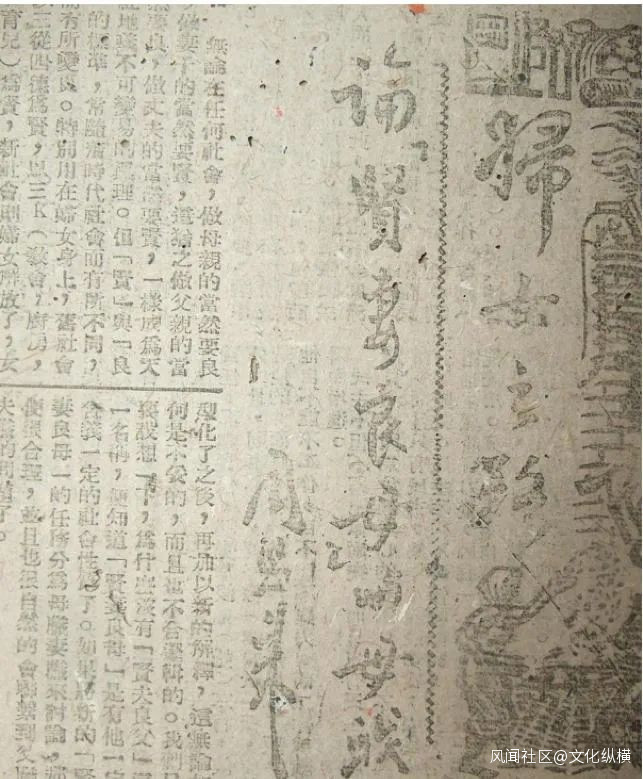 婦女之路
論賢妻良母與母職
周恩来
無論在任何社會，做母親的當然要良
，做妻子的當然要賢，這猶之做父親的當
然要良，做丈夫的當然要賢，一樣成為天
經地義不可變易的真理。但「賢」與「良
」的標準，常隨着時代社會而有所不同，
而有所變的。特別用在婦女身上，舊社會
以三從四德為賢，以三K（教會，廚房，
育兒）為賢，新社會則婦女解放了，女
型化了之後，再加以新的解釋，這無論
何是不妥的，而且也不合邏輯的。我們
設想一下，為什麼沒有「賢夫良父」
一名稱，便知道「賢妻良母」是有他一定
含義一定的社會性質了。如果將新的「賢
妻良母」的任務分為母職妻職來討論，
便很合理，並且也很自然的會聯繫到父職
夫職的問題了。
风闻社区@文化纵横